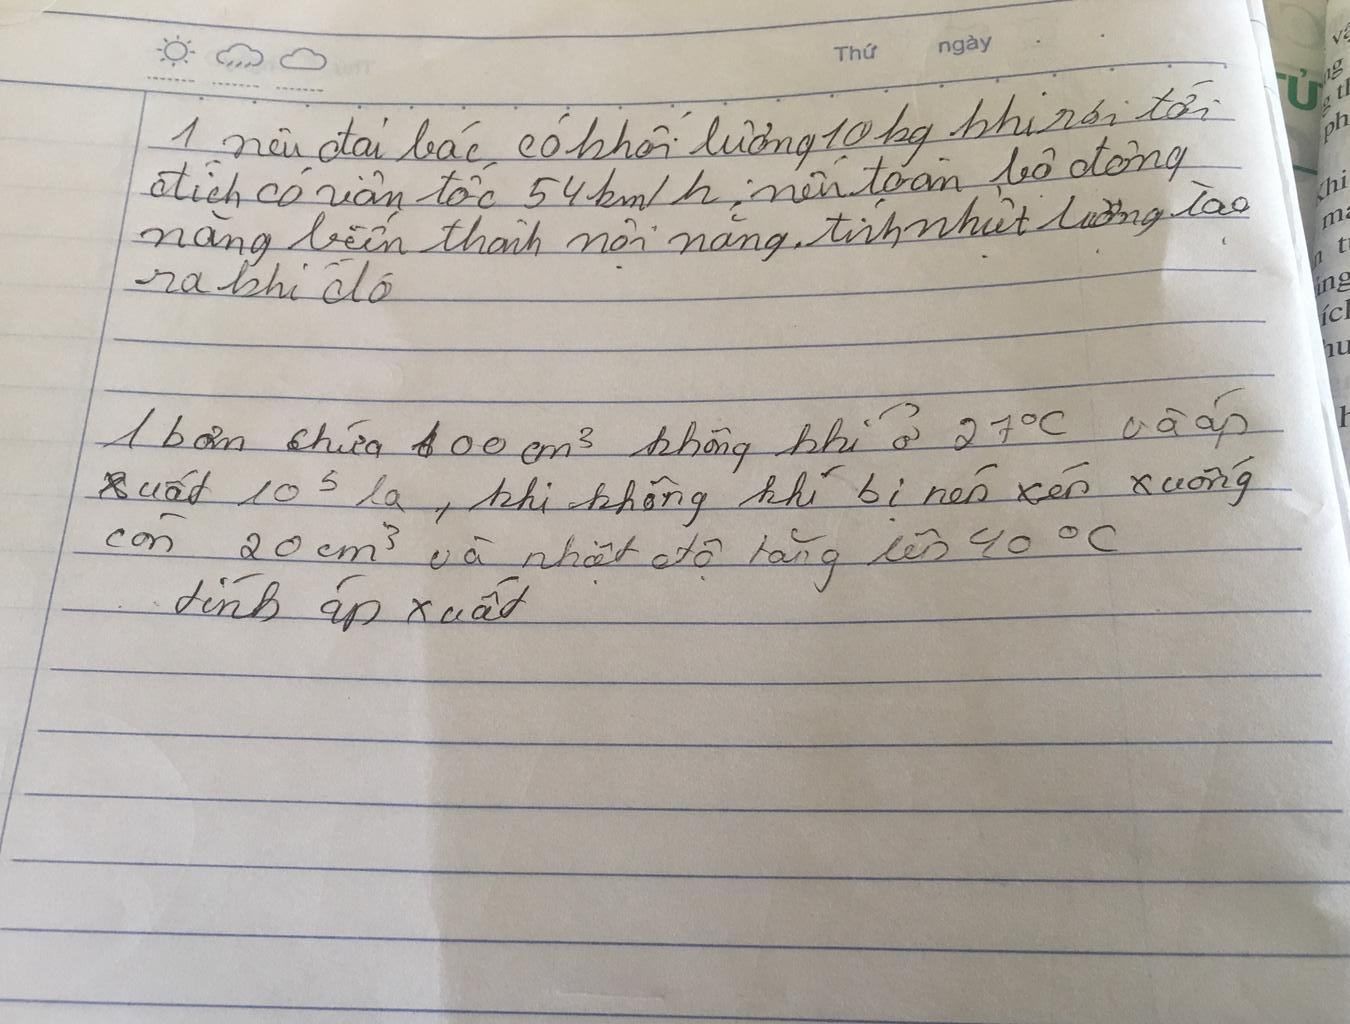 Thứ ngày
1 nêu đại bác có khối lượng 10 kg khi rơi tới
đích có vân tốc 54 km/h, nên toàn bộ động
năng biến thành nội năng. tính nhiệt lượng tảo
ra khi đó
1 bơm chứa 100 cm³ không khí ở 27°C và áp
xuất 10⁵ Pa, khi không khí bị nén xén xuống
còn 20 cm³ và nhiệt độ tăng lên 40 °C
tính áp xuất
TỦ